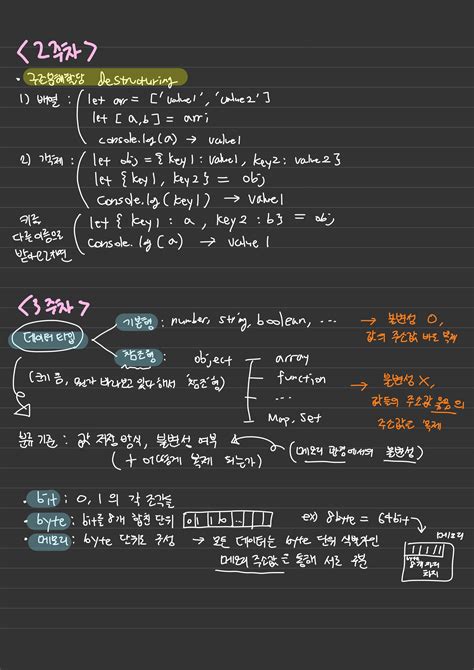 <2주차>
· 구조분해할당 destructuring
1) 배열 : let arr = ['value1', 'value2']
let [a,b] = arr;
console.log(a) → value1
2) 객체 : let obj = {key1 : value1, key2 : value2}
let {key1, key2} = obj
console.log(key1) → value1
키를 let {key1 : a, key2 : b} = obj
다른이름으로 console.log(a) → value1
받아오려면
<3주차>
데이터 타입
기본형 : number, string, boolean, ... → 불변성 O,
값의 주소값 바로 복제
참조형 : object array
function → 불변성 X,
... 값들의 주소값 묶음의
Map, Set 주소값을 복제
분류 기준 : 값 저장 방식, 불변성 여부 (메모리 관점에서의 불변성)
(+ 어떻게 복제 되는가)
· bit : 0, 1의 각 조각들
· byte : bit를 8개 합친 단위 0 1 1 0 ... ex) 8byte = 64bit
· 메모리 : byte 단위로 구성 → 모든 데이터는 byte 단위 식별자인 메모리
메모리 주소값을 통해 서로 구분 byte